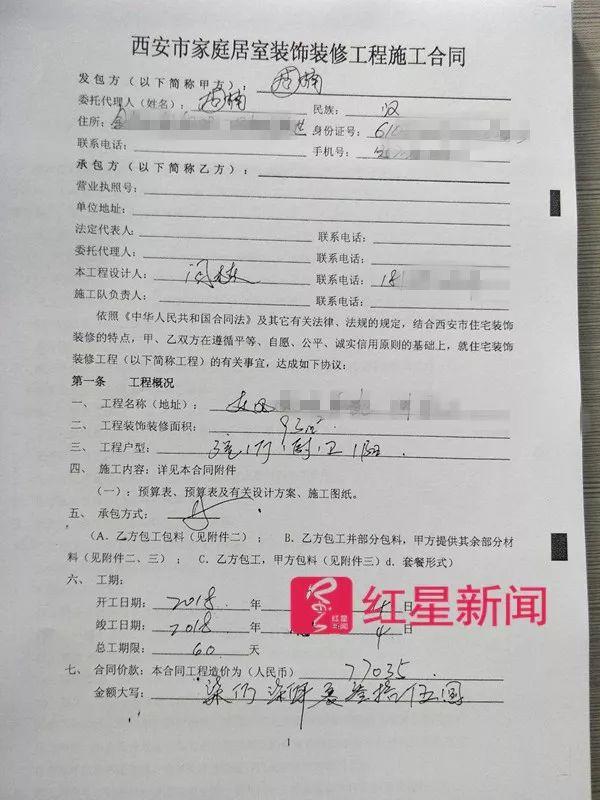 西安市家庭居室装饰装修工程施工合同
发包方(以下简称甲方):
委托代理人(姓名): 民族: 汉
住所: 身份证号: 610
联系电话: 手机号:
承包方(以下简称乙方):
营业执照号:
单位地址:
法定代表人: 联系电话:
委托代理人: 联系电话:
本工程设计人: 联系电话: 18
施工队负责人: 联系电话:
依照《中华人民共和国合同法》及其它有关法律、法规的规定,结合西安市住宅装饰
装修的特点,甲、乙双方在遵循平等、自愿、公平、诚实信用原则的基础上,就住宅装饰
装修工程(以下简称工程)的有关事宜,达成如下协议:
第一条 工程概况
一、 工程名称(地址):
二、 工程装饰装修面积:
三、 工程户型: 厅 厨 卫 阳
四、 施工内容:详见本合同附件
(一):预算表、预算表及有关设计方案、施工图纸。
五、 承包方式:
(A.乙方包工包料(见附件二); B.乙方包工并部分包料,甲方提供其余部分材
料(见附件二、三); C.乙方包工,甲方包料(见附件三)d.套餐形式)
六、 工期:
开工日期: 2018 年 日
竣工日期: 2018 年 4 日
总工期限: 60 天
七、 合同价款:本合同工程造价为(人民币) 77035
金额大写: 柒仟 叁拾伍圆
红星新闻
红星
新闻
1